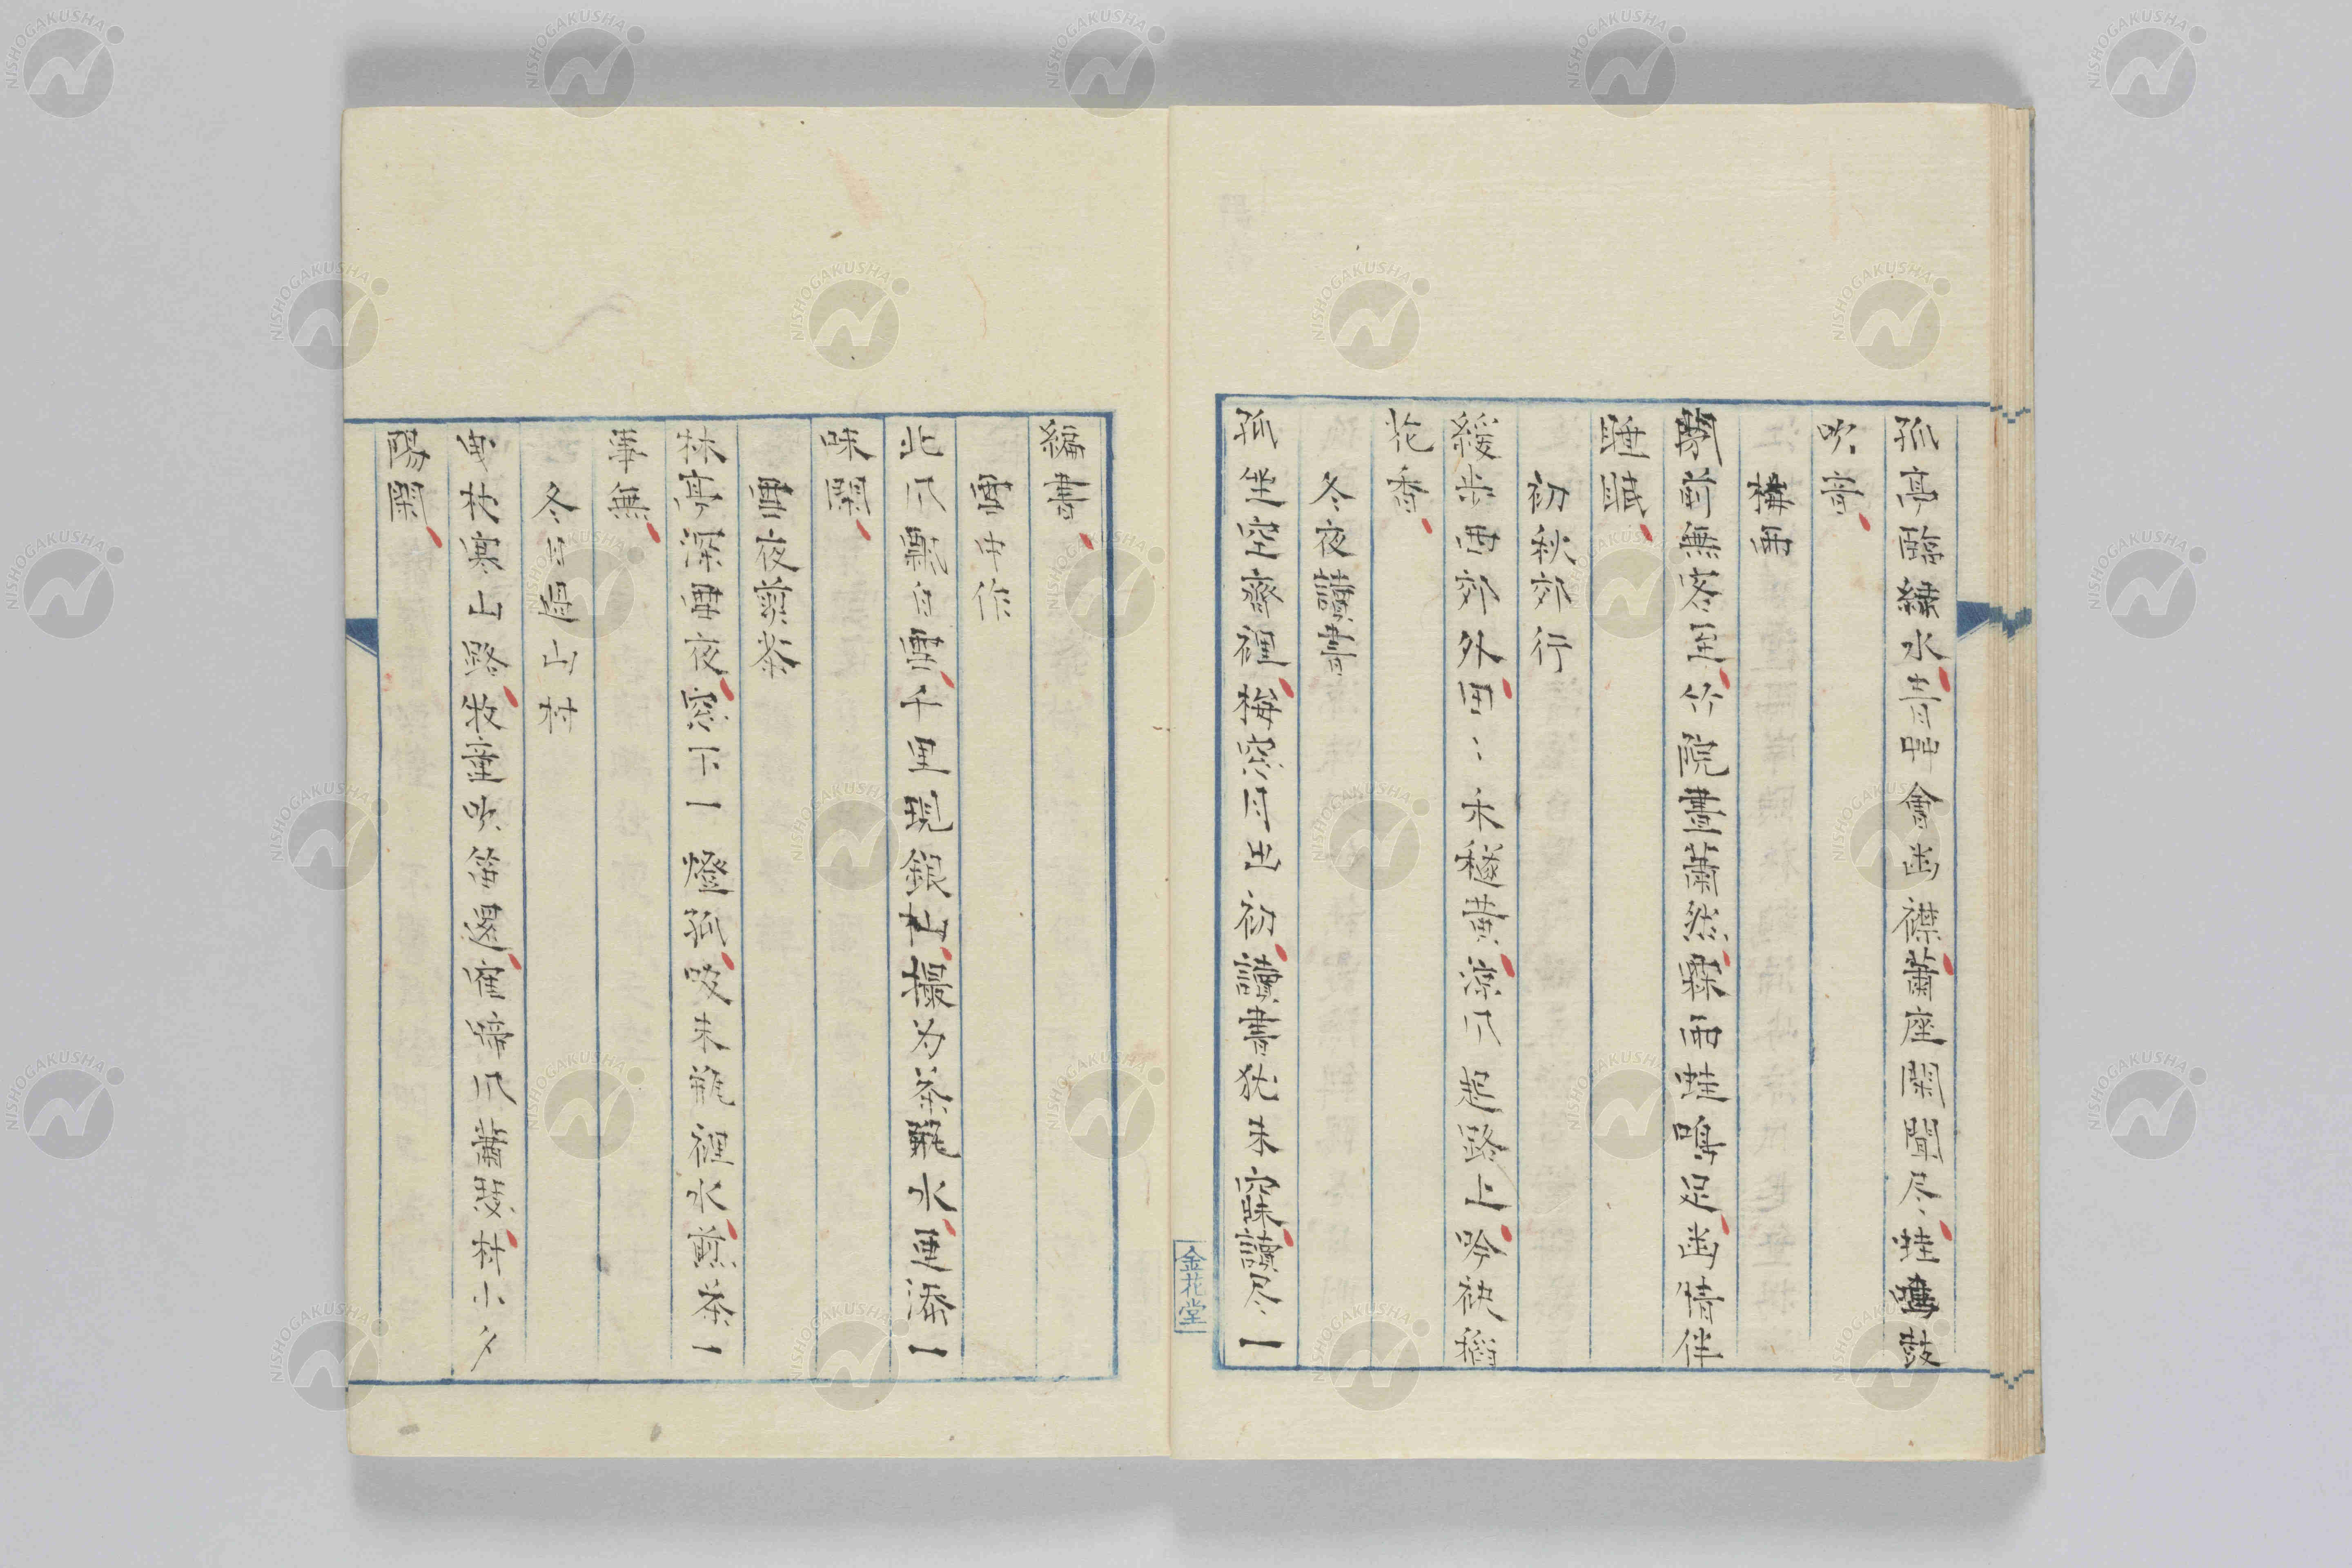 孤亭臨緑水青艸會幽襟蕭座閑聞尽蛙鳴鼓
吹音
梅雨
閑前無客至竹院晝蕭然霖雨蛙鳴足幽情伴
睡眠
初秋郊行
緩歩西郊外田〻禾穟黄涼风起路上吟袂稻
花香
冬夜讀書
孤坐空齋裡梅窓月出初讀書犹未寐讀尽一
編書
雪中作
北风飄白雪千里現銀山撮为茶甌水更添一
味閑
雪夜煎茶
林亭深雪夜窓下一燈孤汲來瓶裡水煎茶一
事無
冬日過山村
曳杖寒山路牧童吹笛還崔嵬风蕭颼村小夕
陽閑
金花堂
NISHOGAKUSHA